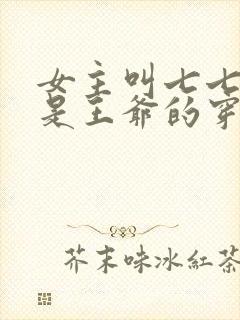 女主叫七七
是王爷的穿
芥末味冰紅茶